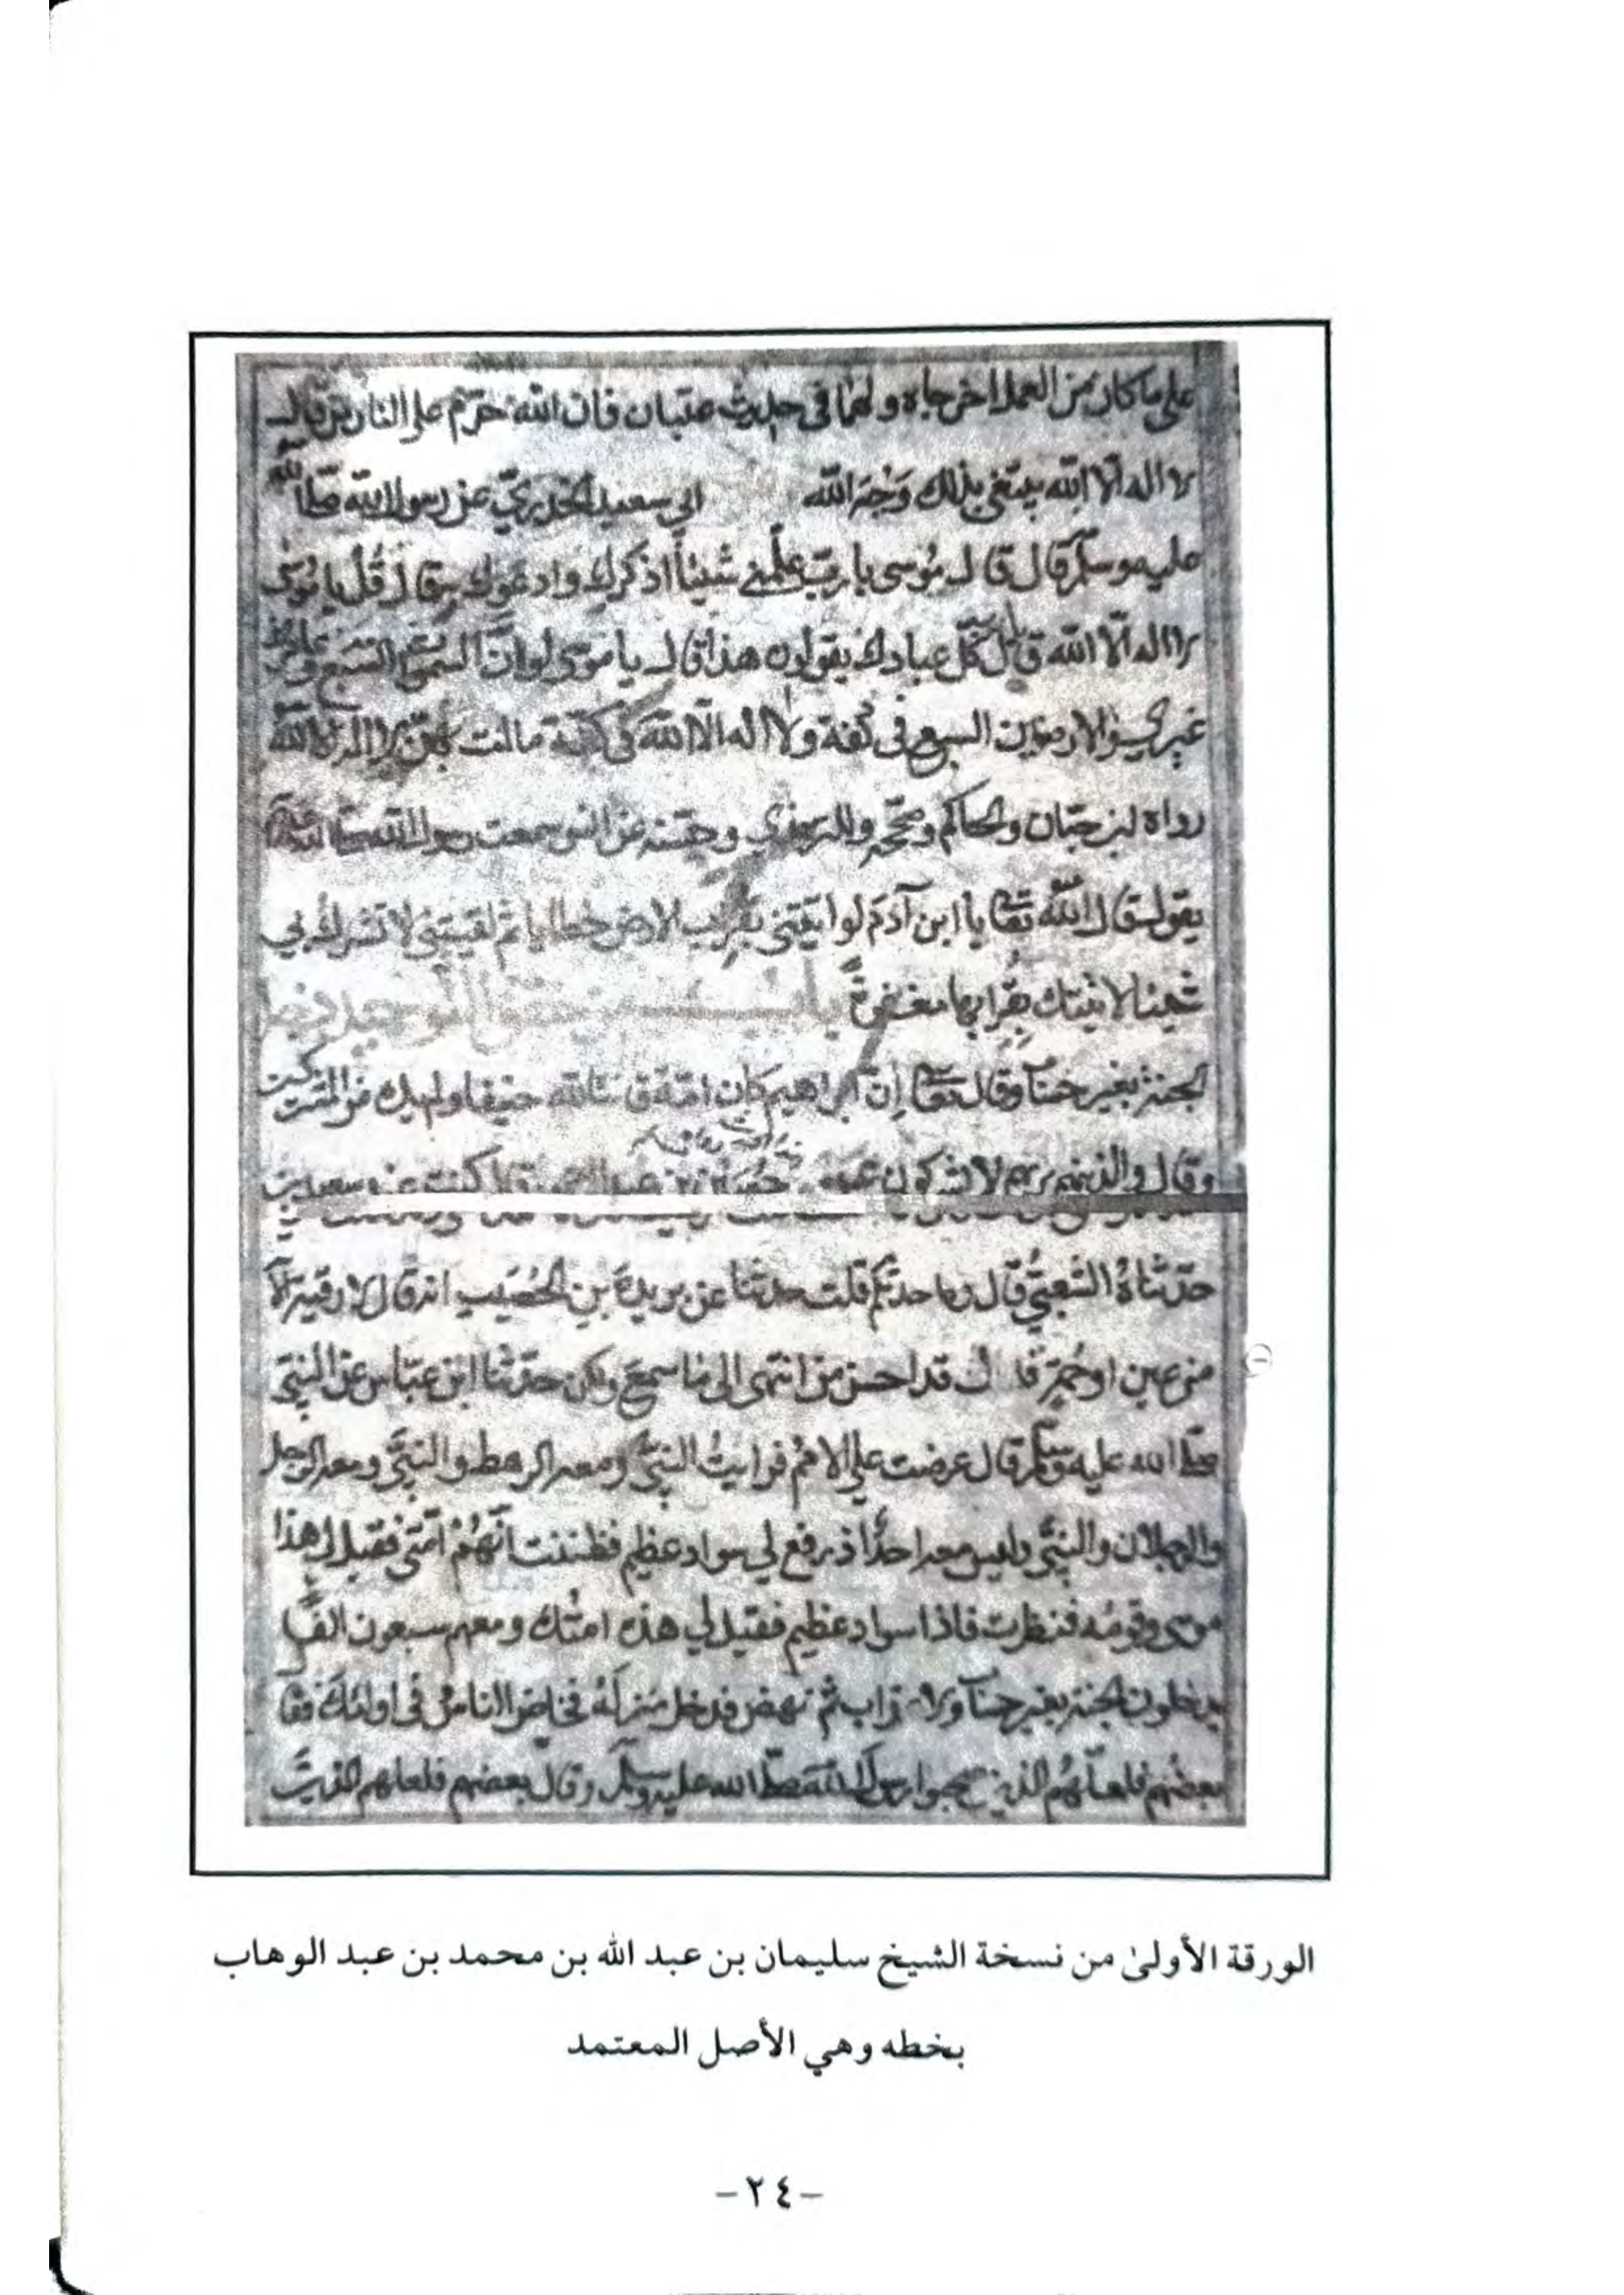 على ما كان من العمل اخرجاه ولهما في حديث عتبان فان الله حرّم على النار من قال
لا اله الا الله يبتغي بذلك وجه الله ابي سعيد الخدريّ عن رسول الله صلى الله
عليه وسلم قال قال موسى يا ربّ علّمني شيئاً اذكرك وادعوك به قال قُل يا موسى
لا اله الا الله قال كلّ عبادك يقولون هذا قال يا موسى لو انّ السموات السبع وعامرهن
غيري والارضين السبع في كفة ولا اله الا الله في كفة مالت بهنّ لا اله الا الله
رواه ابن حبان والحاكم وصححه وللترمذي وحسّنه عن انس سمعت رسول الله صلى الله
يقول قال الله تعا يا ابن آدم لو اتيتني بقراب الارض خطايا ثم لقيتني لا تشرك بي
شيئا لاتيتك بقرابها مغفرةً باب من حقق التوحيد دخل
الجنة بغير حسا وقال تعا إنّ ابراهيم كان امّة قانتا لله حنيفا ولم يك من المشركين
وقال والذين هم بربهم لا يشركون عن حُصَين بن عبد الرحمن قال كنت عند سعيد بن
حدّثناهُ الشعبيّ قال وما حدثكم قلت حدثنا عن بريدة بن الحُصَيب انه قال لا رقية الّا
من عين او حُمة قال قد احسن من انتهى الى ما سمع ولكن حدّثنا ابن عبّاس عن النبيّ
صلى الله عليه وسلم قال عرضت علي الامم فرايتُ النبيّ ومعه الرهط والنبيّ ومعه الرجل
والرجلان والنبيّ وليس معه احدٌ اذ رفع لي سواد عظيم فظننت انّهُمْ امّتي فقيل لي هذا
موسى وقومُه فنظرت فاذا سواد عظيم فقيل لي هذه امتُك ومعهم سبعون الفًا
يدخلون الجنة بغير حسا ولا عذاب ثم نهض فدخل منزلَهُ فخاض الناسُ في اولئك فقا
بعضُهم فلعلّهُم الذين صحبوا رسول الله صلّى الله عليه وسلم وقال بعضهم فلعلهم الذين
الورقة الأولىٰ من نسخة الشيخ سليمان بن عبد الله بن محمد بن عبد الوهاب
بخطه وهي الأصل المعتمد
-٢٤-